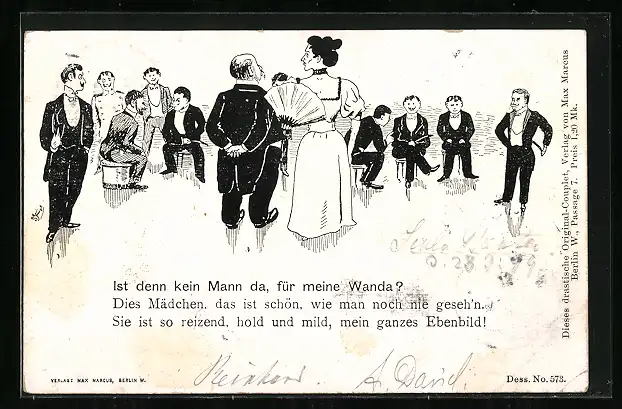 Ist denn kein Mann da, für meine Wanda?
Dies Mädchen, das ist schön, wie man noch nie geseh'n.
Sie ist so reizend, hold und mild, mein ganzes Ebenbild!
Dieses drastische Original-Couplet, Verlag von Max Marcus
Berlin W., Passage 7. Preis 1,20 Mk.
VERLAG: MAX MARCUS, BERLIN W.
A. David.
Dess. No. 573.